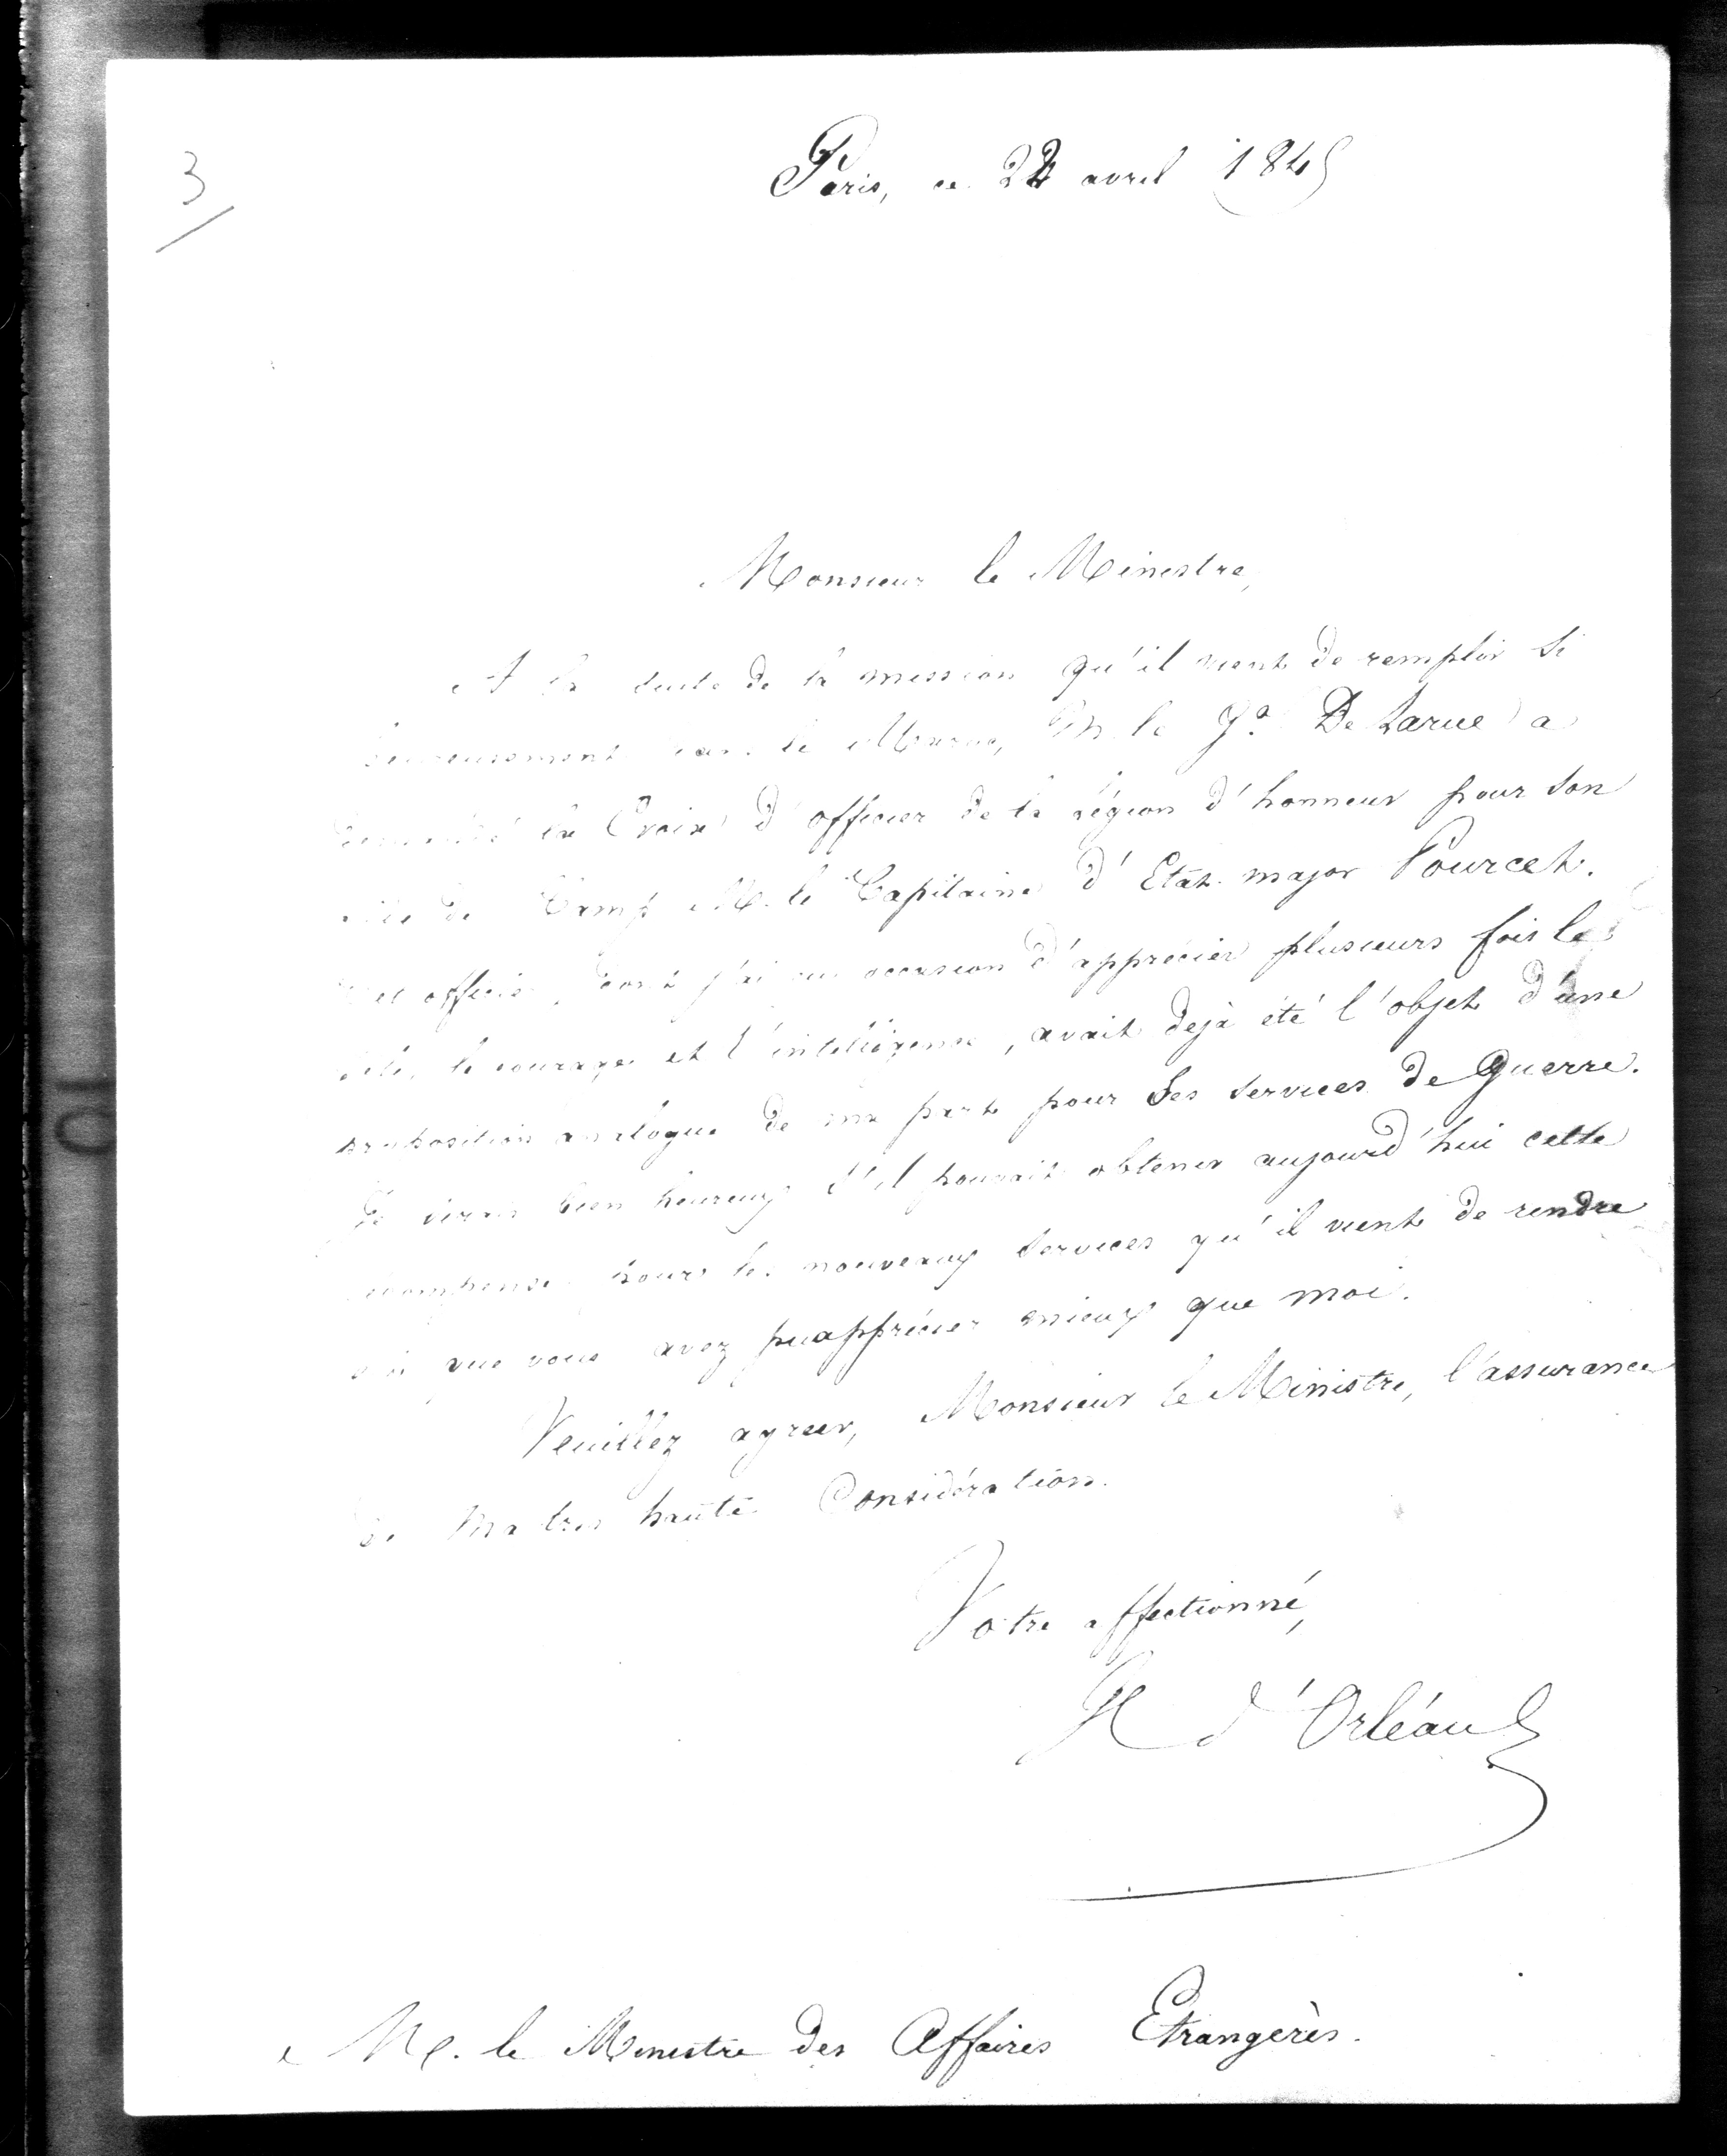 3
Paris, ce 22 avril 1845
Monsieur le Ministre,
A la suite de la mission qu'il vient de remplir si
heureusement dans le Maroc, M. le Gal De Larue a
demandé la Croix d'officier de la légion d'honneur pour son
aide de Camp M. le Capitaine d'Etat-major Pourcet.
Cet officier, dont j'ai eu occasion d'apprécier plusieurs fois le
zèle, le courage et l'intelligence, avait dejà été l'objet d'une
proposition analogue de ma part pour ses services de guerre.
Je serais bien heureux s'il pouvait obtenir aujourd'hui cette
récompense pour les nouveaux services qu'il vient de rendre
que vous avez pu apprécier mieux que moi.
Veuillez agréer, Monsieur le Ministre, l'assurance
de Ma très haute Considération.
Votre affectionné,
H d'Orléans
M. le Ministre des Affaires Etrangères.
10